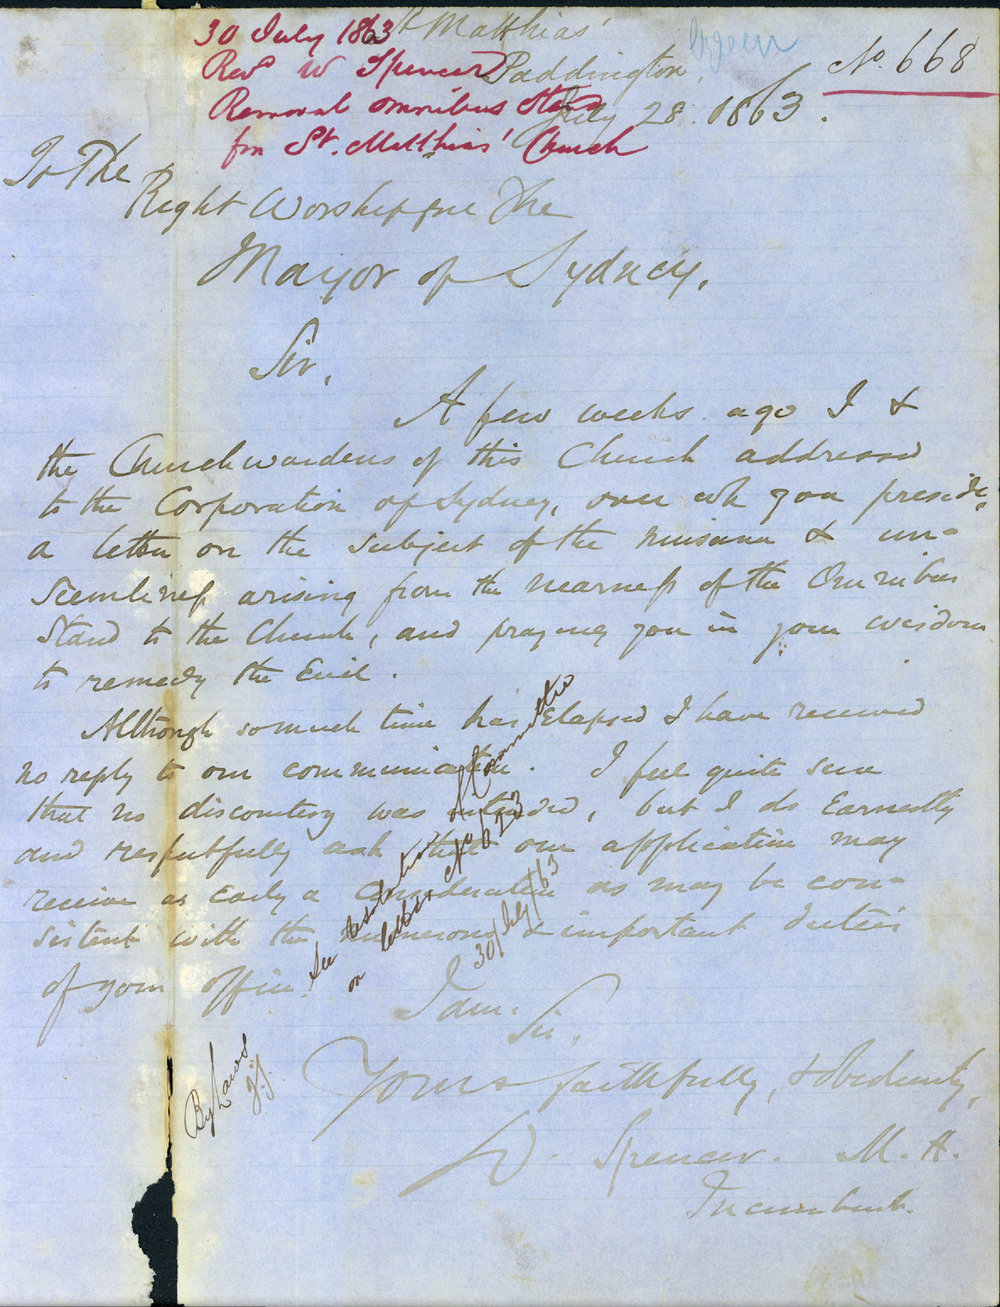 30 July 1863
Revd W Spencer
Removal omnibus Stand
for St. Matthias' Church
St Matthias'
Paddington,
July 28. 1863.
No. 668
To The
Right Worshipful The
Mayor of Sydney.
Sir,
A few weeks ago I &
the Churchwardens of this Church addressed
to the Corporation of Sydney, over wh you preside
a letter on the subject of the nuisance & un-
seemliness arising from the nearness of the Omnibus
Stand to the Church, and praying you in your wisdom
to remedy the Evil.
Although so much time has Elapsed I have received
no reply to our communication. I feel quite sure
that no discourtesy was intended, but I do Earnestly
and respectfully ask that our application may
receive as Early a Consideration as may be con-
sistent with the numerous & important duties
of your office.
See resolution of Committee
on letter No. 623
30/July/63
I am.
Sir,
Yours faithfully, & obediently,
W. Spencer. M.A.
Incumbent.
By Laws